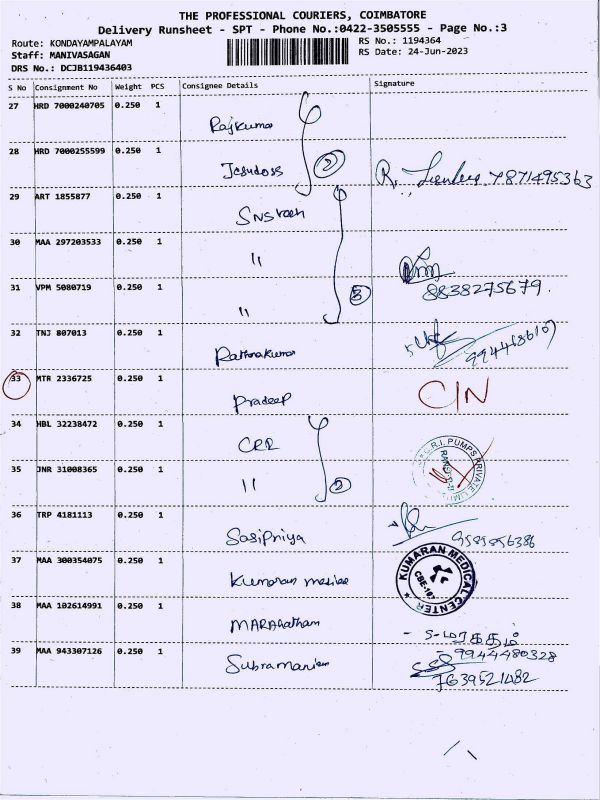 THE PROFESSIONAL COURIERS, COIMBATORE
Delivery Runsheet - SPT - Phone No.:0422-3505555 - Page No.:3
Route: KONDAYAMPALAYAM
RS No.: 1194364
Staff: MANIVASAGAN
RS Date: 24-Jun-2023
DRS No.: DCJB119436403
S No Consignment No Weight PCS Consignee Details Signature
27 HRD 7000240705 0.250 1
Rajkumar
28 HRD 7000255599 0.250 1
Jesudoss 2 R. 7871495363
29 ART 1855877 0.250 1
SNS Tech
30 MAA 297203533 0.250 1
"
31 VPM 5080719 0.250 1
" 3 8838275679.
32 TNJ 807013 0.250 1
Rathnakumar
33 MTR 2336725 0.250 1
Pradeep C/N
34 HBL 32238472 0.250 1
CRR
C.R.I. PUMPS PRIVATE LIMITED
35 JNR 31008365 0.250 1
" 2
36 TRP 4181113 0.250 1
Sasipriya
37 MAA 300354075 0.250 1
Kumaran medical
KUMARAN MEDICAL CENTER
38 MAA 102614991 0.250 1
MARAhatham
- S-மரகதம்
39 MAA 943307126 0.250 1
- 9944480328
Subramaniam
7639521482